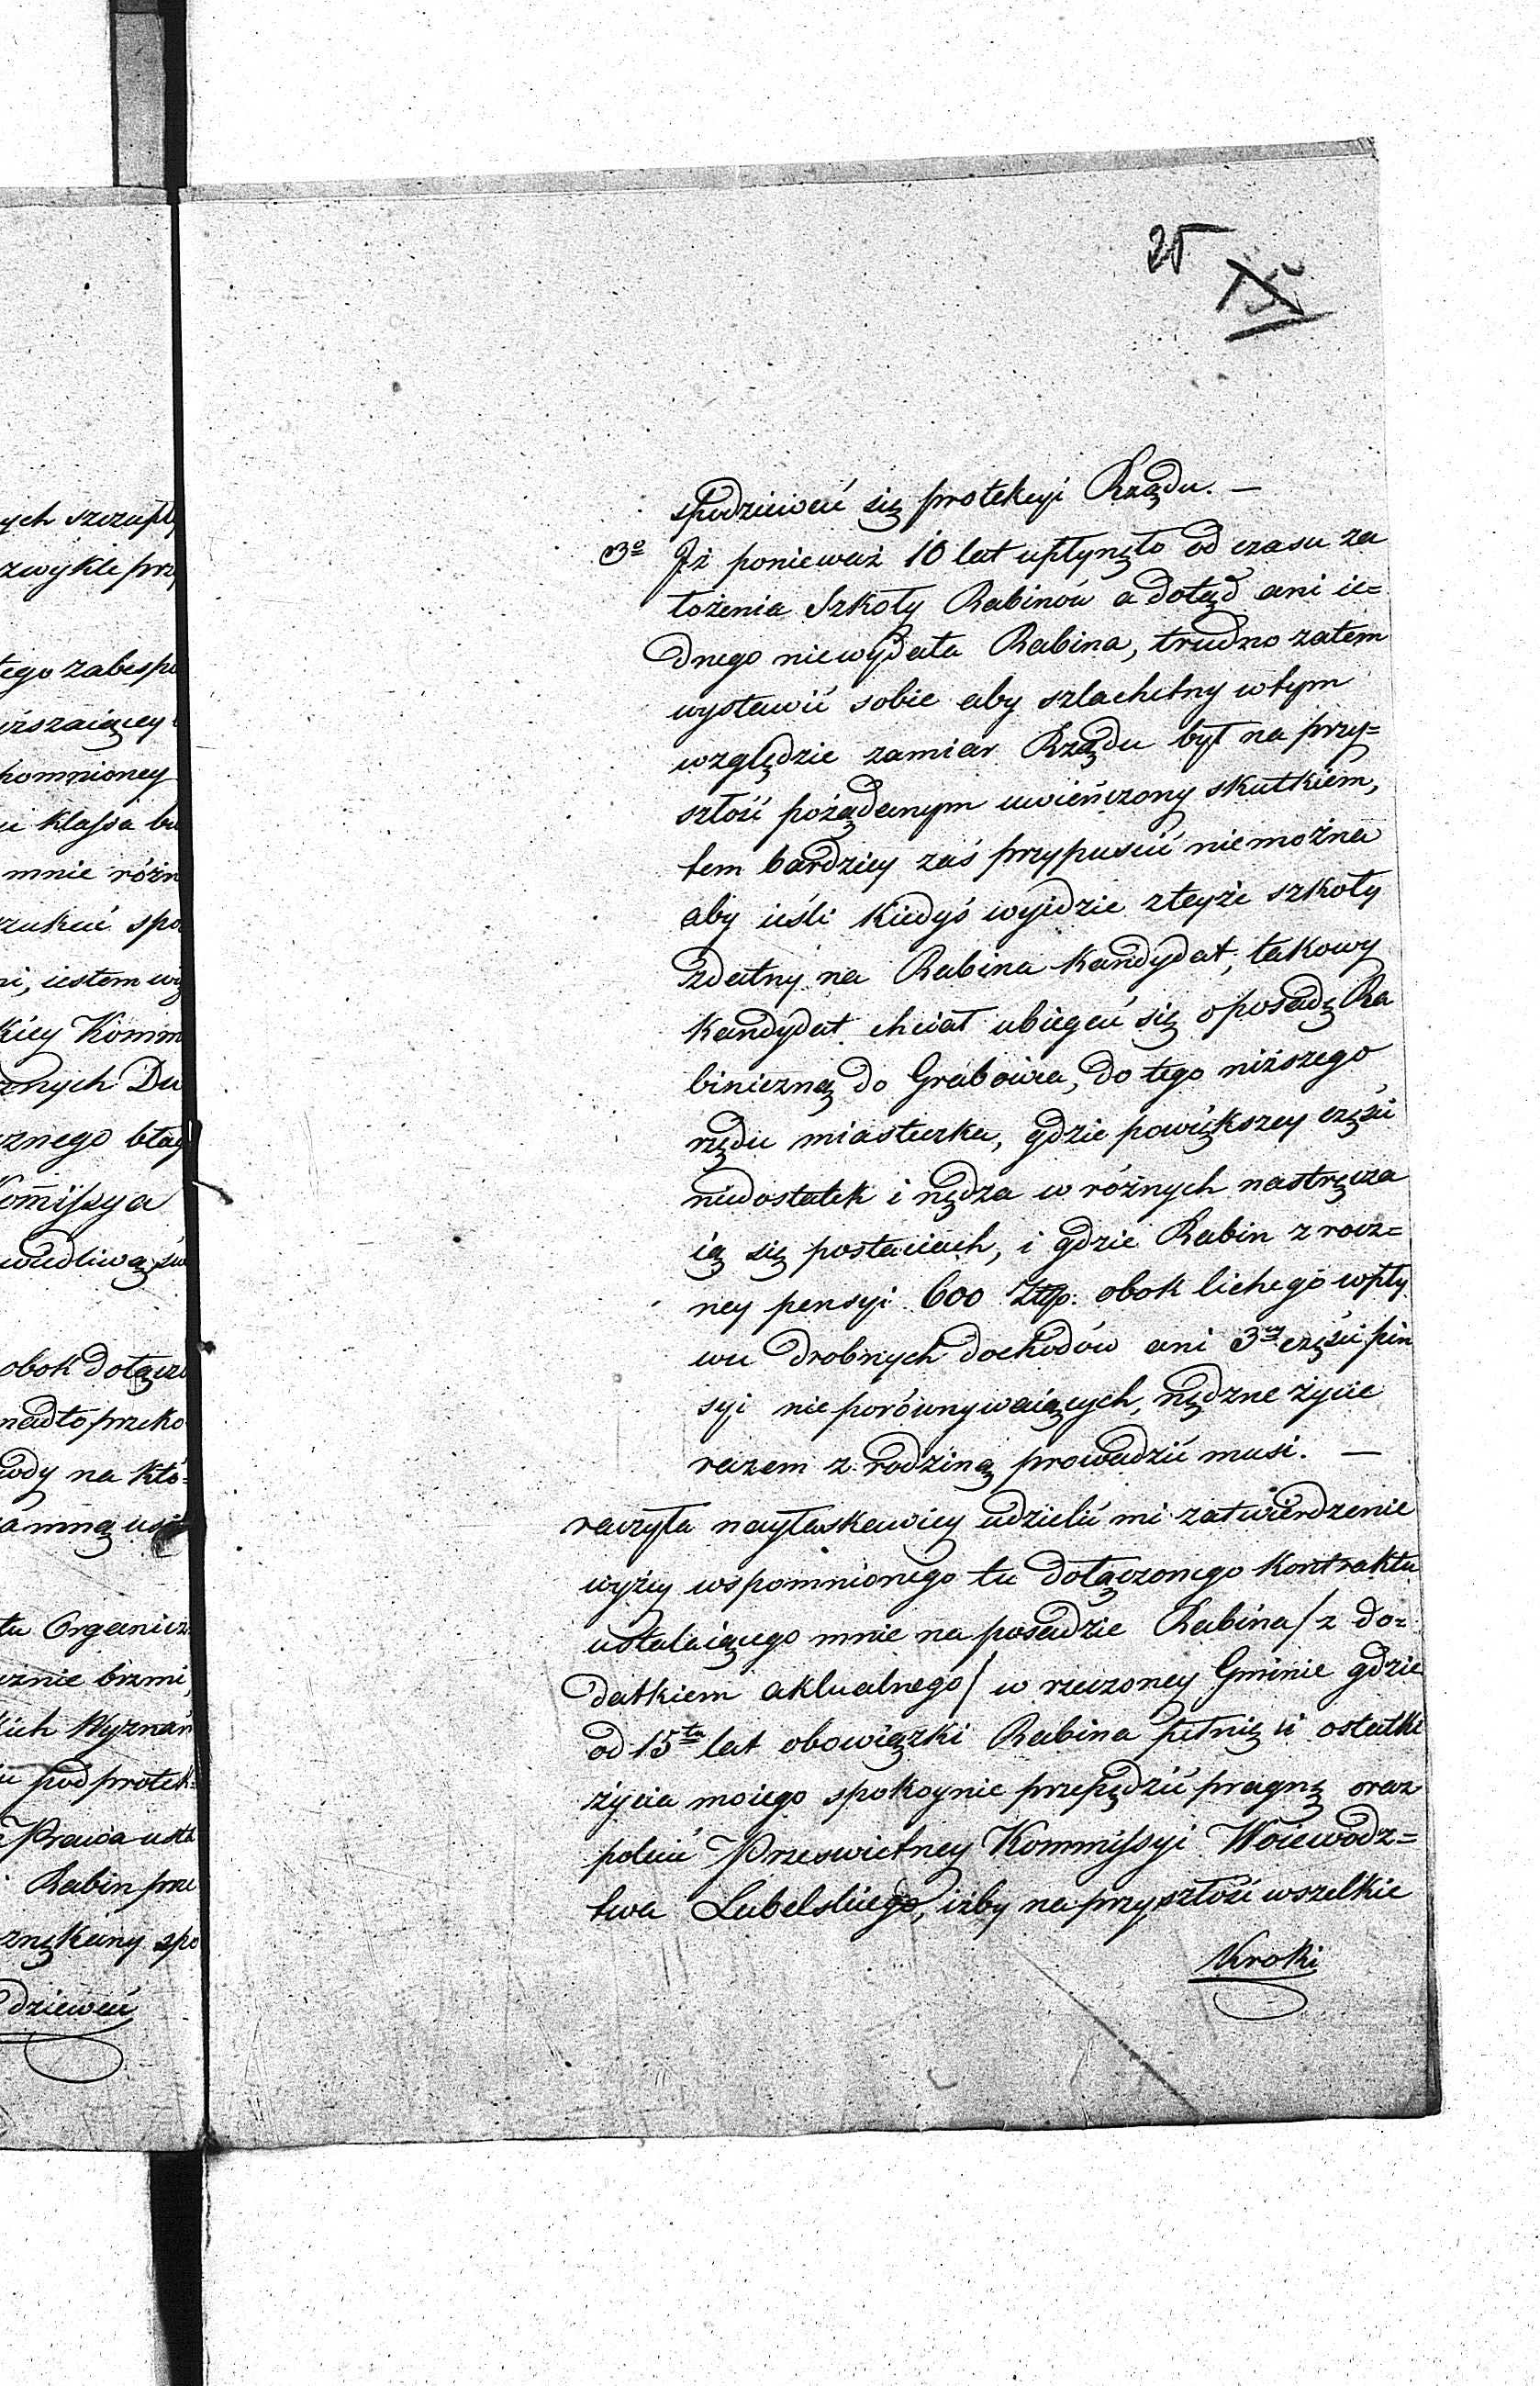 25
ych szczupł
zwykle prz
tego zabespie
wszaiącey
pomnioney
klassa
mnie różn
szukać spo
ni, iestem
kiey Komm
znych Du
znego błag
Kom̄issya
wiedliwą
obok dołącz
nadto przeko
wody na któ-
Organicz
cznie brzmi,
kich Wyznań
pod protek-
Prawa usta
Rabin prze
spo
dziewać
spodziewać się protekcyi Rządu. —
3o Iż ponieważ 10 lat upłynęło od czasu za
łożenia Szkoły Rabinów a dotąd ani ie-
dnego niewydała Rabina, trudno zatem
wystawić sobie aby szlachetny wtym
względzie zamiar Rządu był na przy-
szłość pożądanym uwieńczony skutkiem,
tem bardziey zaś przypuścić niemożna
aby ieśli kiedyś wyidzie zteyże szkoły
zdatny na Rabina Kandydat, takowy
Kandydat chciał ubiegać się oposadę Ra
biniczną do Grabowca, do tego niższego
rzędu miasteczka, gdzie powiększey części
niedostatek i nędza w różnych nastręcza
ią się postaciach, i gdzie Rabin z rocz-
ney pensyi 600 Złp. obok lichego wpły
wu drobnych dochodów ani 3ey części pen
syi nie porównywaiących, nędzne życie
razem z rodziną prowadzić musi. —
raczyła nayłaskawiey udzielić mi zatwierdzenie
wyżey wspomnionego tu dołączonego Kontraktu
ustalaiącego mnie na posadzie Rabina / z do-
datkiem aktualnego / w rzeczoney Gminie gdzie
od 15tu lat obowiązki Rabina pełnię i ostatki
życia moiego spokoynie przepędzić pragnę oraz
polecić Prześwietney Kommissyi Woiewódz-
twa Lubelskiego, iżby na przyszłość wszelkie
Kroki